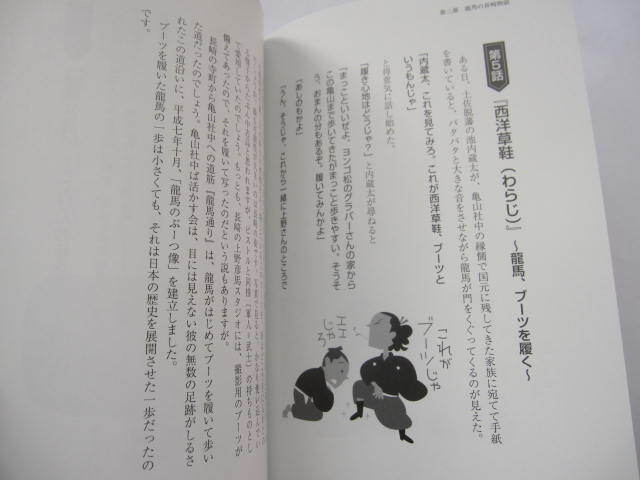 第二部 龍馬の長崎物語
第5話
『西洋草鞋(わらじ)』 ～龍馬、ブーツを履く～
ある日、土佐脱藩の池内蔵太が、亀山社中の縁側で国元に残してきた家族に宛てて手紙
を書いていると、バタバタと大きな音をさせながら龍馬が門をくぐってくるのが見えた。
「内蔵太、これを見てみろ。これが西洋草鞋、ブーツと
いうもんじゃ」
と得意気に話し始めた。
「履き心地はどうじゃ?」と内蔵太が尋ねると
「まっこといいせよ。ヨンゴ松のグラバーさんの家から
この亀山まで歩いてきたがまっこと歩きやすい。そうそ
う。おまんの分もあるぞ。履いてみんかよ」
「あしのもかよ」
「うん、そうじゃ。これから一緒に上野さんのところで
これが
ブーツじゃ
エエ
じゃろ
ピストルと同様「軍人=武士」の持ちものとし
て愛用し
長崎の上野彦馬スタジオには、撮影用のブーツが
備えてあったので、それを履いて写ったのだという説もありますが。
長崎の寺町から亀山社中への道筋『龍馬通り』は、龍馬がはじめてブーツを履いて歩い
た道だったのでしょう。亀山社中ば活かす会は、目には見えない彼の無数の足跡がしるさ
れたこの道沿いに、平成七年十月、「龍馬のぶーつ像」を建立しました。
ブーツを履いた龍馬の一歩は小さくても、それは日本の歴史を展開させた一歩だったの
です。